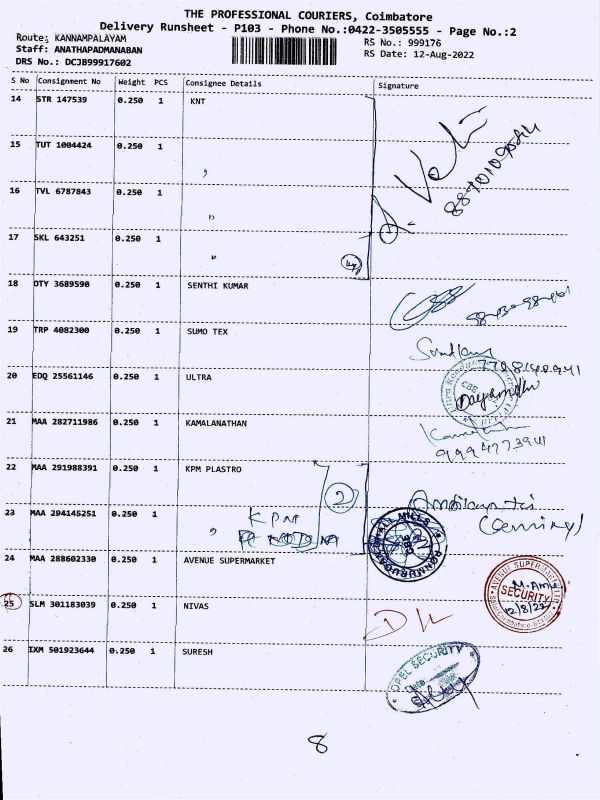 THE PROFESSIONAL COURIERS, Coimbatore
Delivery Runsheet - P103 - Phone No.:0422-3505555 - Page No.:2
Route: KANNAMPALAYAM
RS No.: 999176
Staff: ANATHAPADMANABAN
RS Date: 12-Aug-2022
DRS No.: DCJB99917602
S No Consignment No Weight PCS Consignee Details Signature
14 STR 147539 0.250 1 KNT
15 TUT 1004424 0.250 1 ,
16 TVL 6787843 0.250 1 "
17 SKL 643251 0.250 1 "
18 OTY 3689590 0.250 1 SENTHI KUMAR
19 TRP 4082300 0.250 1 SUMO TEX
7708140941
20 EDQ 25561146 0.250 1 ULTRA
CBE
21 MAA 282711986 0.250 1 KAMALANATHAN
9994773941
22 MAA 291988391 0.250 1 KPM PLASTRO
2
23 MAA 294145251 0.250 1
KPM
24 MAA 288602330 0.250 1 AVENUE SUPERMARKET
AVENUE SUPERMARTS LTD
SECURITY
12/8/22
25 SLM 301183039 0.250 1 NIVAS
26 IXM 501923644 0.250 1 SURESH
OPEL SECURITY
8